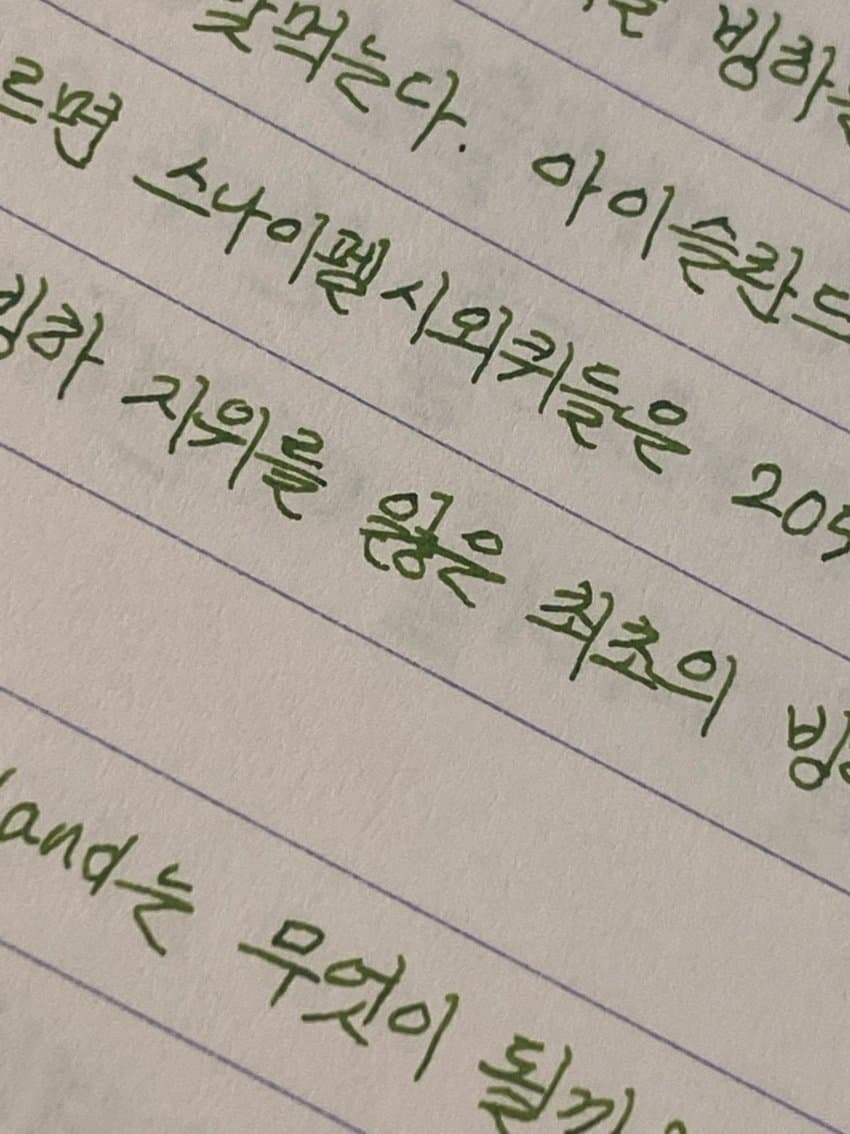 빙하
먹는다. 아이슬란드
르면 스나이펠시외퀴들은 205
빙하 지위를 잃은 최초의 빙
land는 무엇이 될까